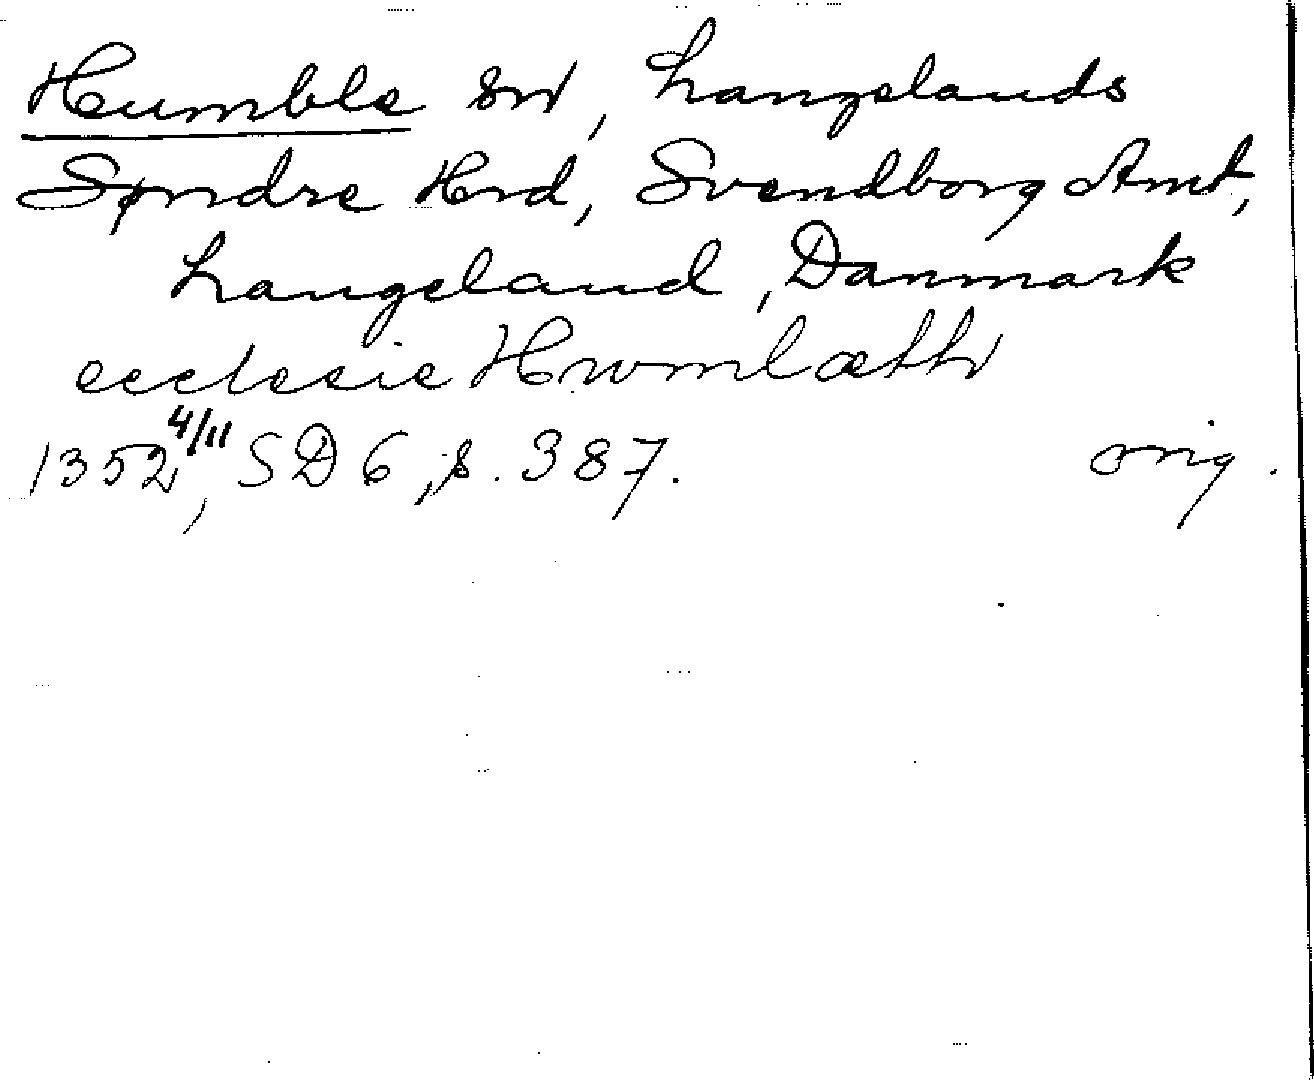 Humble sn, Langelands
Søndre Hrd, Svendborg Amt,
Langeland, Danmark
ecclesie Hwmlæth
1352 4/11, SD 6, s. 387. orig.